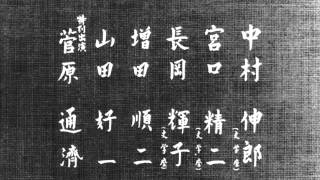 中村 伸郎
(文学座)
宮口 精二
(文学座)
長岡 輝子
(文学座)
増田 順二
山田 好一
特別出演
菅原 通済